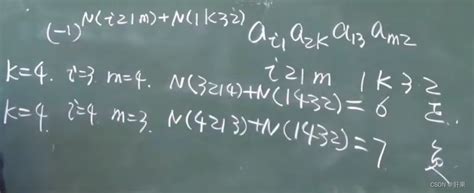 (-1)^{N(i21m)+N(1k32)} a_{i1} a_{2k} a_{13} a_{m2}
i21m 1k32
k=4. i=3 m=4. N(3214)+N(1432)=6 正.
k=4. i=4 m=3. N(4213)+N(1432)=7 负
CSDN @奸期